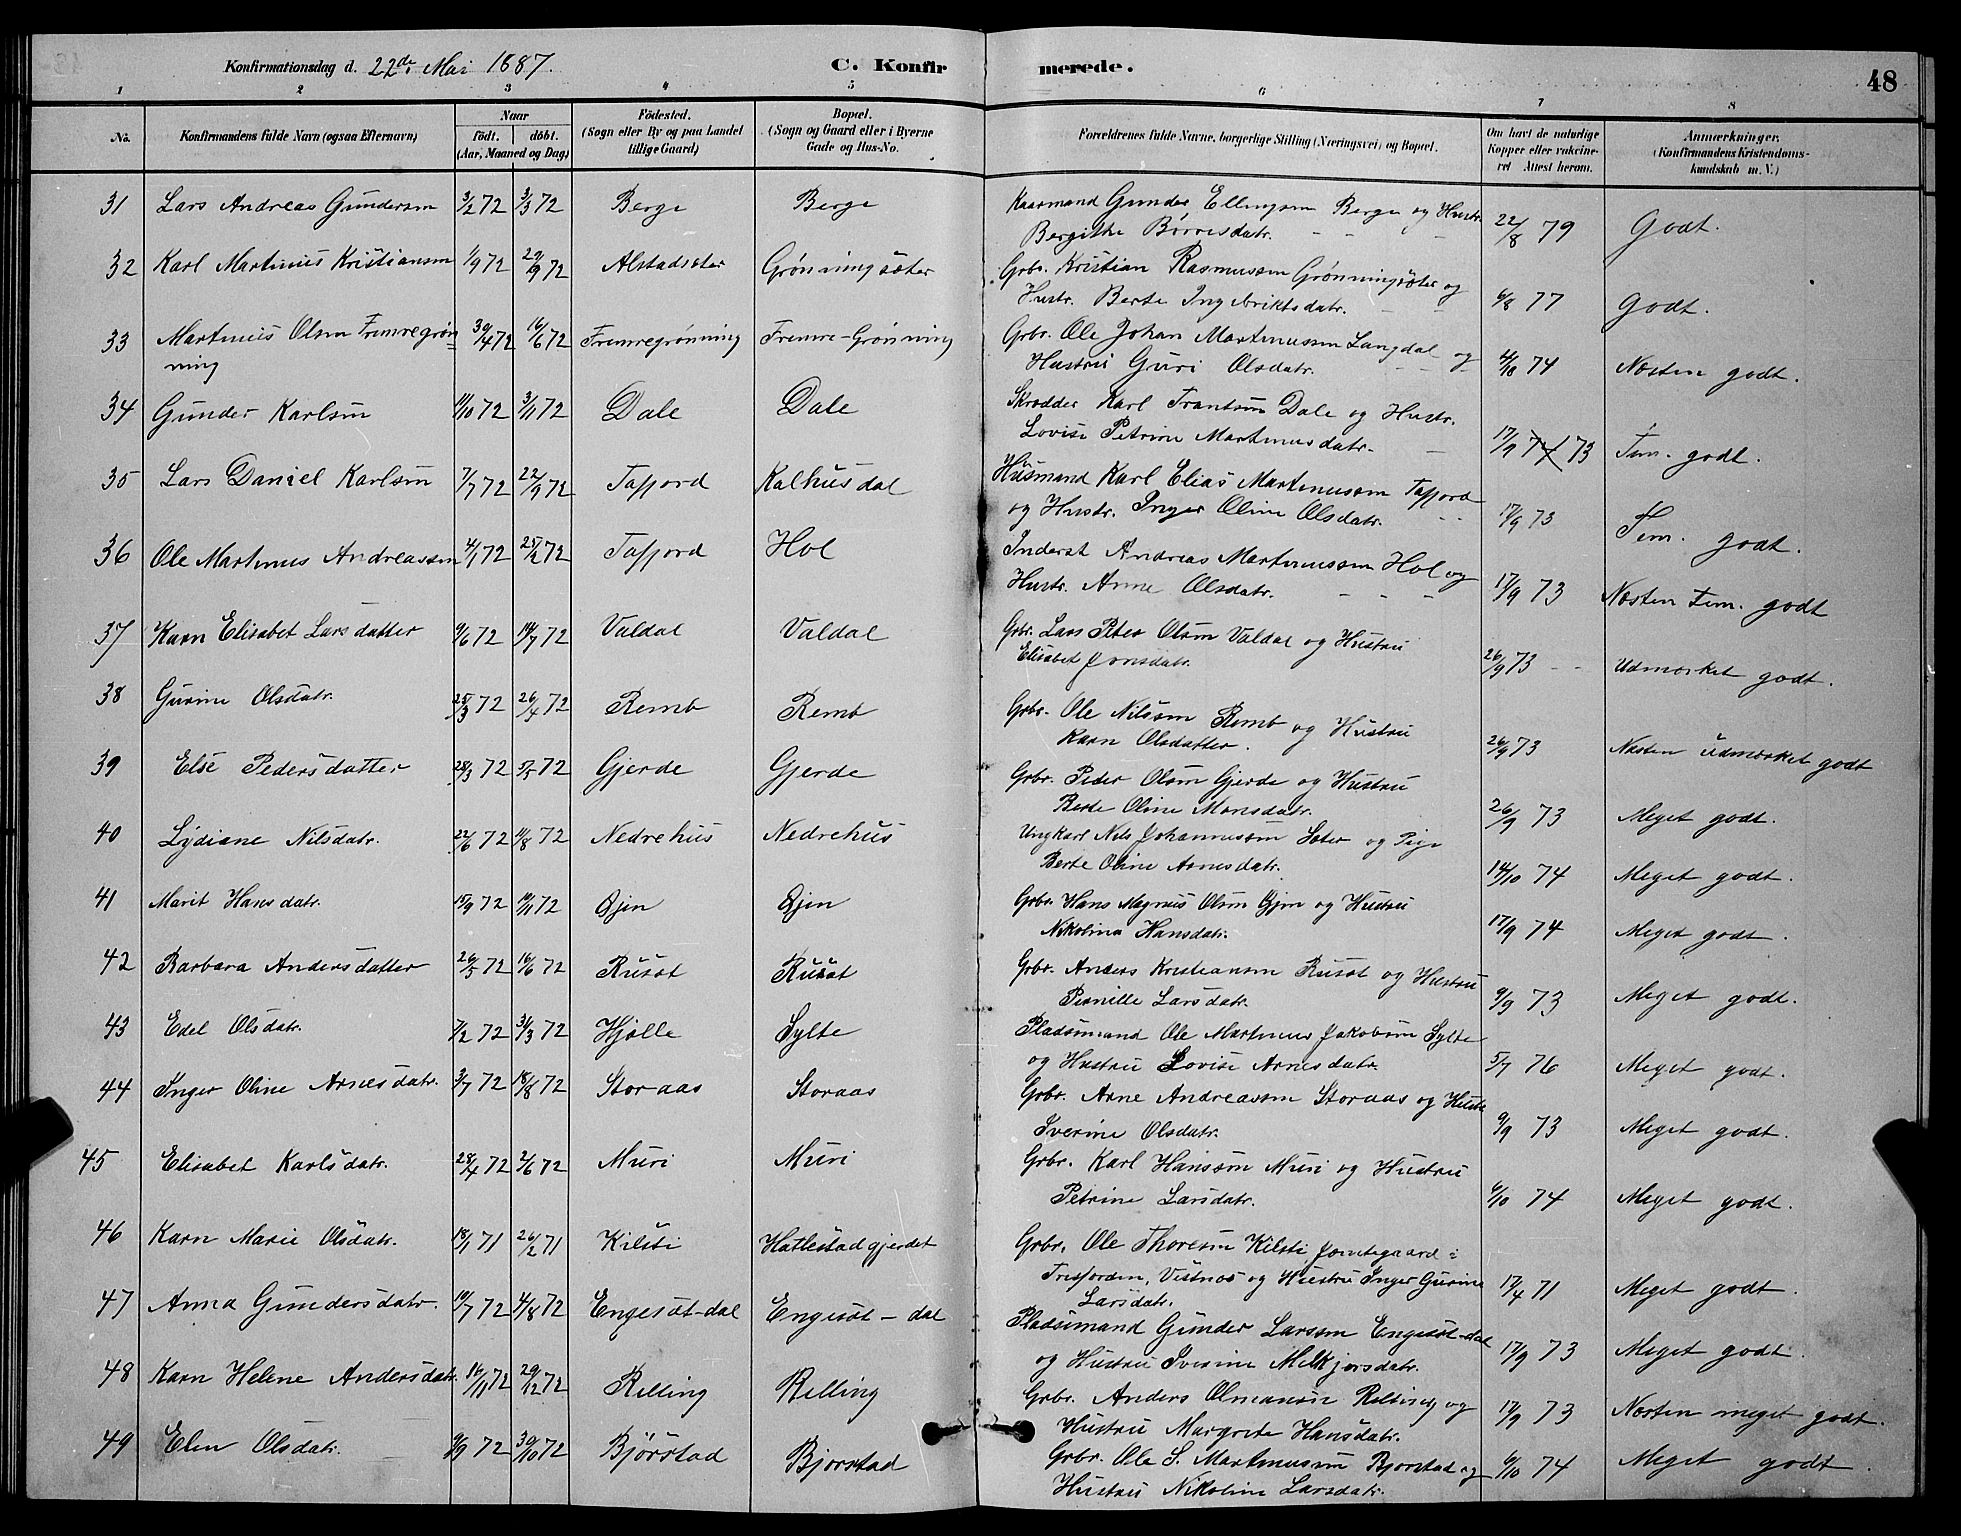 Konfirmationsdag d. 22de Mai 1887. C. Konfirmerede. 48
1 2 3 4 5 6 7 8
No. Konfirmandens fulde Navn (ogsaa Efternavn) Naar födt. döbt. (Aar, Maaned og Dag) Födested. (Sogn eller By og paa Landet tillige Gaard) Bopæl. (Sogn og Gaard eller i Byerne Gade og Hus-No. Forældrenes fulde Navne, borgerlige Stilling (Næringsvei) og Bopæl. Om havt de naturlige Kopper eller vakcineret Attest herom. Anmærkninger. (Konfirmandens Kristendomskundskab m. V.)
31 Lars Andreas Gundersen 3/2 72 3/3 72 Berge Berge Kaarmand Gunder Ellingsen Berge og Hustr. 22/8 79 Godt.
Bergithe Börresdatr. - - -
32 Karl Martinus Kristiansen 1/9 72 29/9 72 Alstadsæter Grønningsæter Grbr. Kristian Rasmussen Grønningsæter og 6/8 77 Godt.
Hustr. Berte Ingebriktsdatr. - -
33 Martinus Olsen Fremregrøn= 30/4 72 16/6 72 Fremregrønning Fremre-Grønning Grbr. Ole Johan Martinussen Langdal og 4/10 74 Næsten godt.
ning Hustru Guri Olsdatr. - - -
34 Gunder Karlsen 11/10 72 3/11 72 Dale Dale Skrædder Karl Frantsen Dale og Hustr. 17/9 73 Tem. godt.
Lovise Petrine Martinusdatr. -
35 Lars Daniel Karlsen 7/7 72 22/9 72 Tafjord Kalhusdal Husmand Karl Elias Martinussen Tafjord 17/9 73 Tem. godt.
og Hustr. Inger Oline Olsdatr. - -
36 Ole Martinus Andreassen 4/1 72 25/2 72 Tafjord Hol Inderst Andreas Martinussen Hol og 17/9 73 Næsten tem. godt
Hustr. Anne Olsdatr. - - -
37 Karn Elisabet Larsdatter 9/6 72 14/7 72 Valdal Valdal Grbr. Lars Peter Olsen Valdal og Hustru 26/9 73 - - Udmærket godt.
Elisabet Jonsdatr.
38 Gurine Olsdatr. 25/3 72 26/4 72 Remb Remb Grbr. Ole Nilssen Remb og Hustru 26/9 73 Næsten udmærket godt
Karn Olsdatter.
39 Else Pedersdatter 28/3 72 5/5 72 Gjerde Gjerde Grbr. Peder Olsen Gjerde og Hustru 26/9 73 Meget godt.
Berte Oline Monsdatr.
40 Lydiane Nilsdatr. 22/6 72 11/8 72 Nedrehus Nedrehus Ungkarl Nils Johannessen Sæter og Pige 14/10 74 Meget godt.
Berte Oline Arnesdatr.
41 Marit Hansdatr. 15/9 72 10/11 72 Øjen Øjen Grbr. Hans Magnus Olsen Øjen og Hustru 17/9 74 Meget godt.
Nikoline Hansdatr.
42 Barbara Andersdatter 26/5 72 16/6 72 Rusæt Rusæt Grbr. Anders Kristiansen Rusæt og Hustru 9/9 73 Meget godt.
Pernille Larsdatr.
43 Edel Olsdatr. 7/2 72 31/3 72 Hjølle Sylte Pladsmand Ole Martinus Jakobsen Sylte 5/7 76 Meget godt.
og Hustru Lovise Arnesdatr.
44 Inger Oline Arnesdatr. 3/7 72 18/8 72 Storaas Storaas Grbr. Arne Andreassen Storaas og Hustr. 9/9 73 Meget godt.
Iverine Olsdatr.
45 Elisabet Karlsdatr. 28/4 72 2/6 72 Muri Muri Grbr. Karl Hanssen Muri og Hustru 6/10 74 Meget godt.
Petrine Larsdatr.
46 Karn Marie Olsdatr. 18/1 71 26/2 71 Kilsti Hatlestadgjerdet Grbr. Ole Thoresen Kilsti i
Tresfjorden, Vestnæs og Hustru Inger Gurine 17/4 71 Meget godt.
Larsdatr.
47 Anna Gundersdatr. 10/7 72 4/8 72 Engesæt-dal Engesæt-dal Pladsmand Gunder Larssen Engesæt-dal 17/9 73 Meget godt.
og Hustru Iverine Melkjørsdatr.
48 Karn Helene Andersdatr. 16/11 72 29/12 72 Relling Relling Grbr. Anders Olmansen Relling og 17/9 73 Næsten meget godt.
Hustru Margrete Hansdatr.
49 Elen Olsdatr. 9/9 72 30/10 72 Bjørstad Bjorstad Grbr. Ole S. Martinussen Bjorstad og 6/10 74 Meget godt.
Hustru Nikoline Larsdatr.